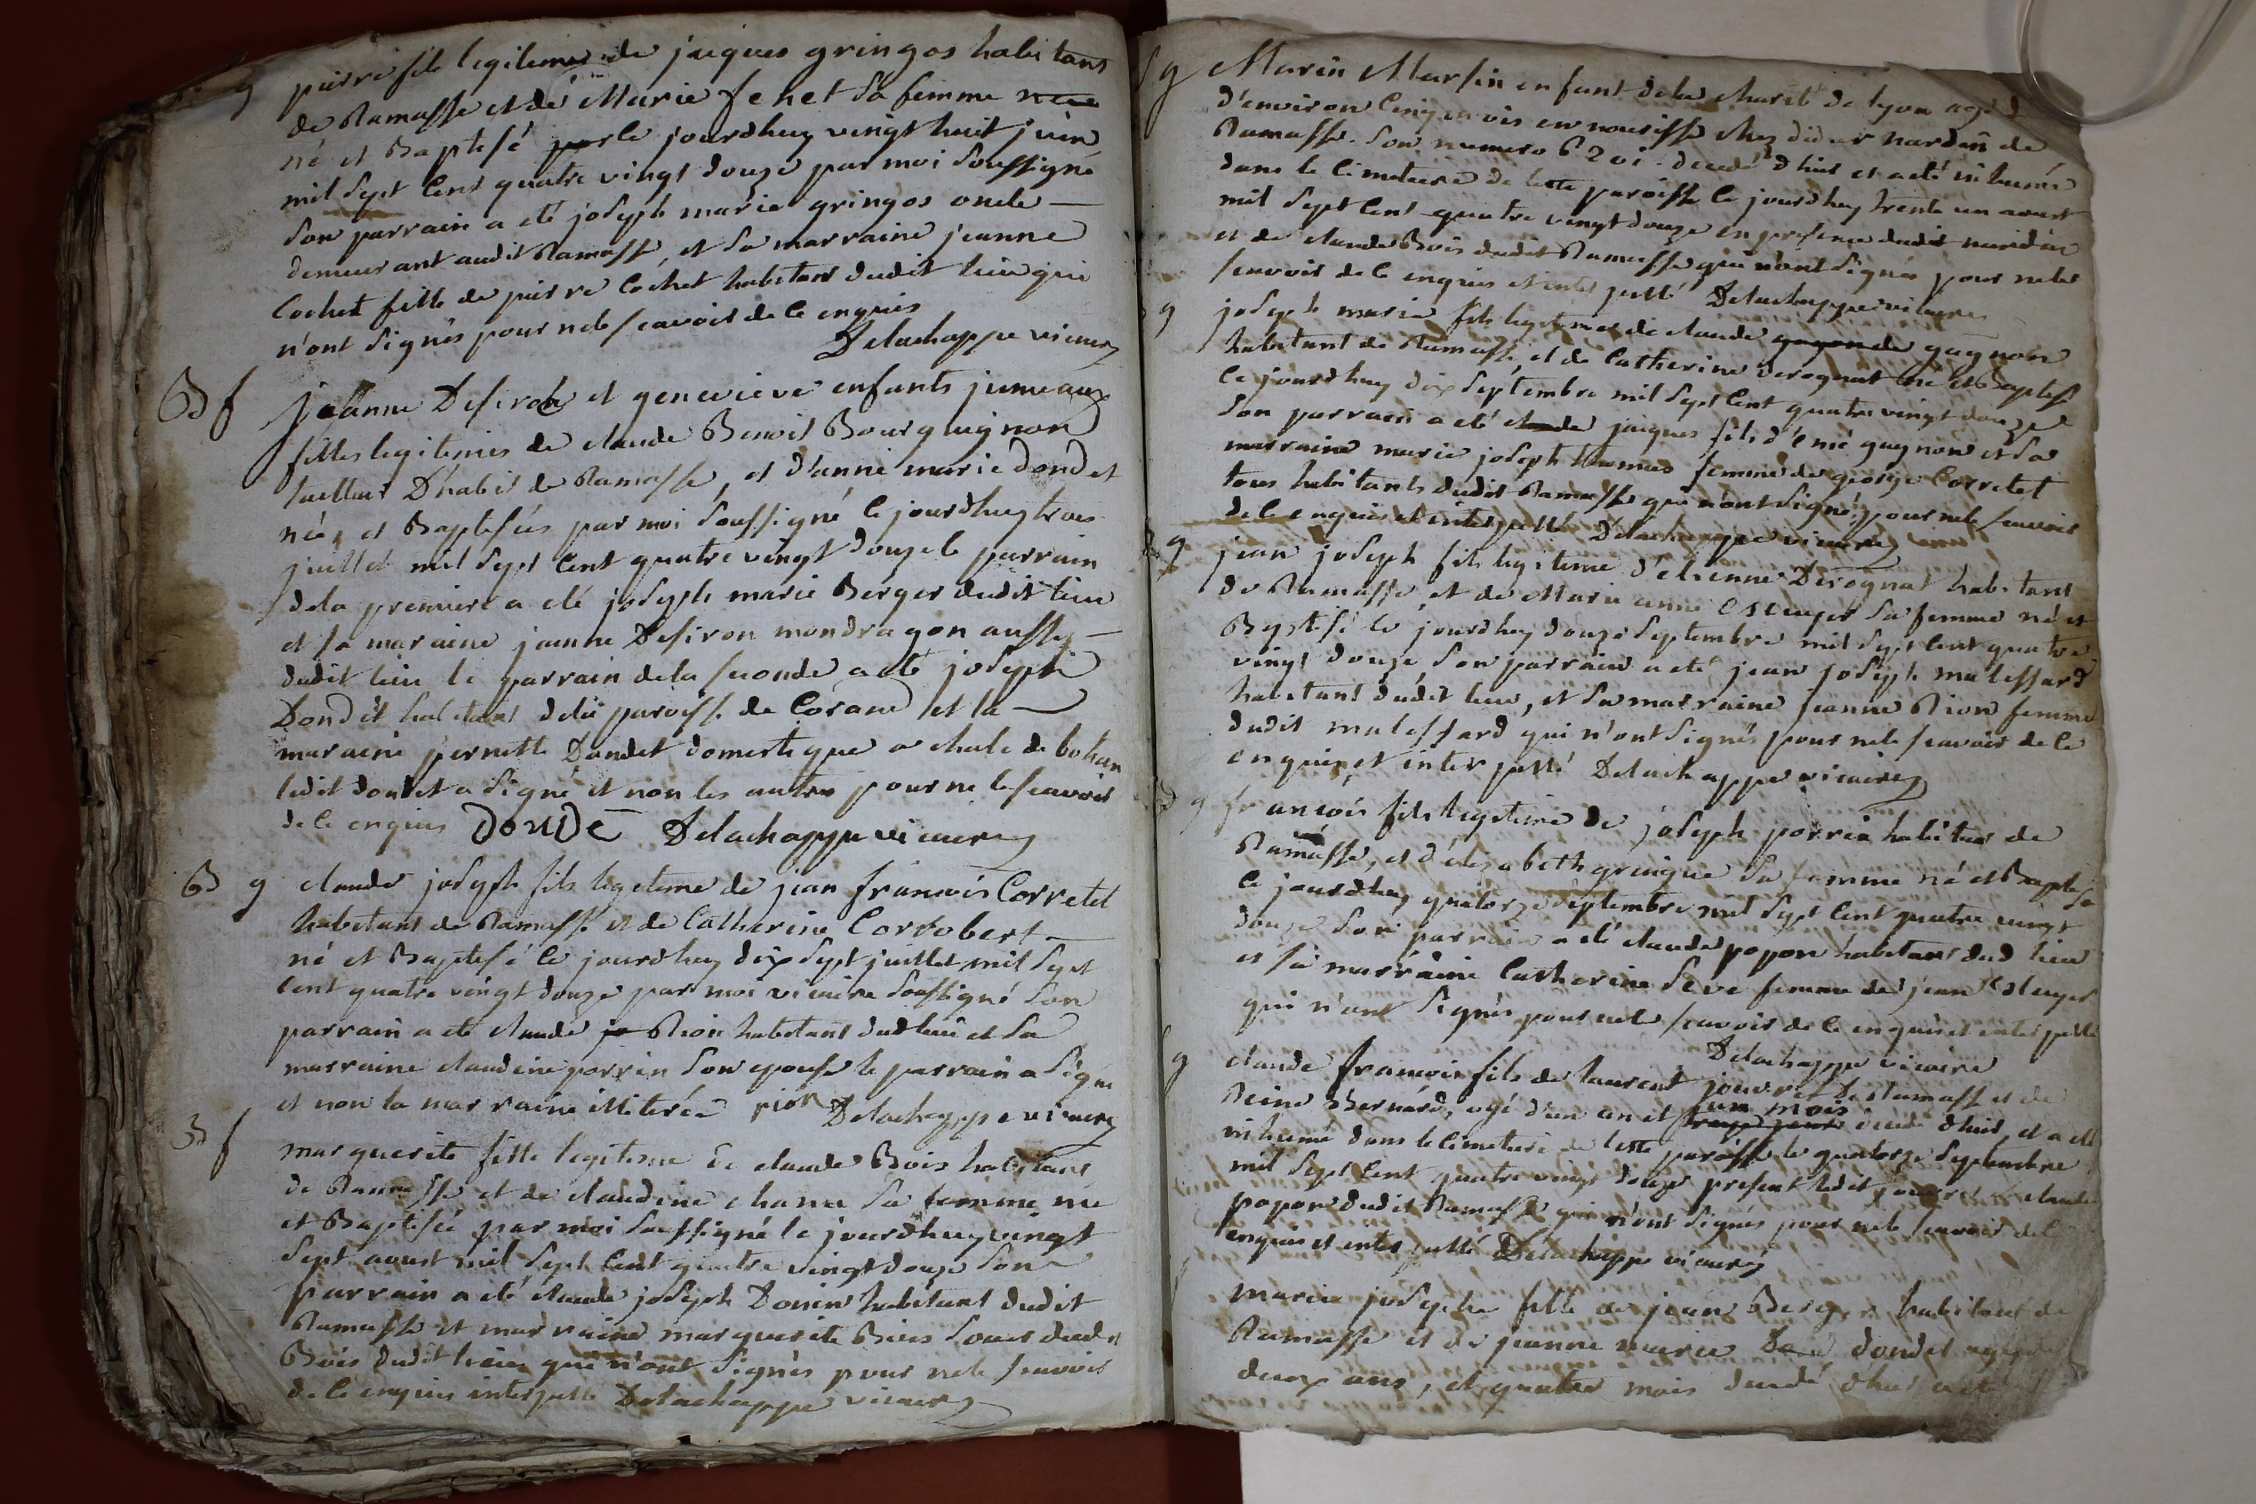 g pierre fils legitime de jacques gringos habitans
de Ramasse et de Marie fenet Sa femme
né et Baptisé par le jourdhuy vingt huit juin
mil Sept Cent quatre vingt douze par moi Soussigné
Son parrain a été joseph marie gringos oncle
demeurant audit Ramasse, et Sa marraine jeanne
Cochet fille de pierre Cochet habitant dudit lieu qui
n'ont Signés pour ne le Scavoir de ce enquis
Delachappe vicaire
B f jeanne Desirée et genevieve enfants jumeaux
filles legitimes de claude Benoit Bourguignon
tailleur D'habit de Ramasse, et d'anne marie dondet
née, et Baptisées par moi Soussigné le jourdhuy trois
juillet mil Sept Cent quatre vingt douze le parrain
de la premiere a été joseph marie Berger dudit lieu
et Sa maraine jeanne Desiron mondragon aussy
dudit lieu le parrain de la Seconde a été joseph
Dondet habitant de la paroisse de Corand et la
maraine pernette Dondet domestique a chale de bohan
ledit dondet a Signé et non les autres pour ne le Scavoir
de ce enquis DONDE Delachappe vicaire
B g claude joseph fils legitime de jean francois Corretet
habitant de Ramasse et de Catherine Corrobert
né et Baptisé le jourdhuy dix Sept juillet mil Sept
Cent quatre vingt douze par moi vicaire Soussigné Son
parrain a été claude jo Pion habitant dud lieu et Sa
marraine claudine porrin Son epouse le parrain a Signé
et non la marraine illiterée pion Delachappe vicaire
B f marguerite fille legitime de claude Bois habitant
de Ramasse et de claudine chanu Sa femme née
et Baptisée par moi Soussigné le jourdhuy vingt
Sept aoust mil Sept Cent quatre vingt douze Son
parrain a été claude joseph Donin habitant dudit
Ramasse et marraine marguerite Bois Soeur dudit
Bois dudit lieu qui n'ont Signés pour ne le Scavoir
de ce enquis interpellé Delachappe vicaire
S g Marin Marsin enfant de la charité de lyon agé
d'environ Cinq mois en nourisse chez didier nardin de
Ramasse. Son numero 6201. decedé d'hier et a été inhumé
dans le Cimetiere de cette paroisse le jourdhuy trente un aoust
mil Sept Cent quatre vingt douze en presence dudit nardin
et de claude Bois dudit Ramasse qui n'ont Signés pour ne le
Scavoir de ce enquis et interpellé Delachappe vicaire
g joseph marie fils legitime de claude gagnon
habitant de Ramasse, et de Catherine verognat né et Baptisé
le jourdhuy dix Septembre mil Sept Cent quatre vingt douze
Son parrain a été claude jacques fils d'emé gagnon et Sa
marraine marie joseph thomas femme de george Corretet
tous habitants dudit Ramasse qui n'ont Signé, pour ne le Scavoir
de ce enquis et interpellé Delachappe vicaire
B g jean joseph fils legitime d'etienne Derognat habitant
de Ramasse, et de Marie anne escuyer Sa femme né et
Baptisé le jourdhuy douze Septembre mil Sept Cent quatre
vingt douze Son parrain a été jean joseph malessard
habitant dudit lieu, et Sa marraine jeanne Pion femme
dudit malessard qui n'ont Signés pour ne le Scavoir de ce
enquis, et interpellé Delachappe vicaire
B g francois fils legitime de joseph porrin habitant de
Ramasse, et d'elisabeth gringue Sa femme né et Baptisé
le jourdhuy quatorze Septembre mil Sept Cent quatre vingt
douze Son parrain a été claude popon habitant dud lieu
et Sa marraine Catherine Seve femme de jean escuyer
qui n'ont Signés pour ne le Scavoir de ce enquis et interpellé
Delachappe vicaire
g claude francois fils de laurent jouvret de Ramasse et de
Reine Bernard, agé d'un an et un mois decedé d'hier, et a été
inhumé dans le Cimetiere de cette paroisse le quatorze Septembre
mil Sept Cent quatre vingt douze present ledit jouvret claude
popon dudit Ramasse qui n'ont Signés pour ne le Scavoir de ce
enquis et interpellé Delachappe vicaire
marie josephe fille de jean Berger habitant de
Ramasse et de jeanne marie dondet agée
deux ans, et quatre mois decedé d'hier a eté